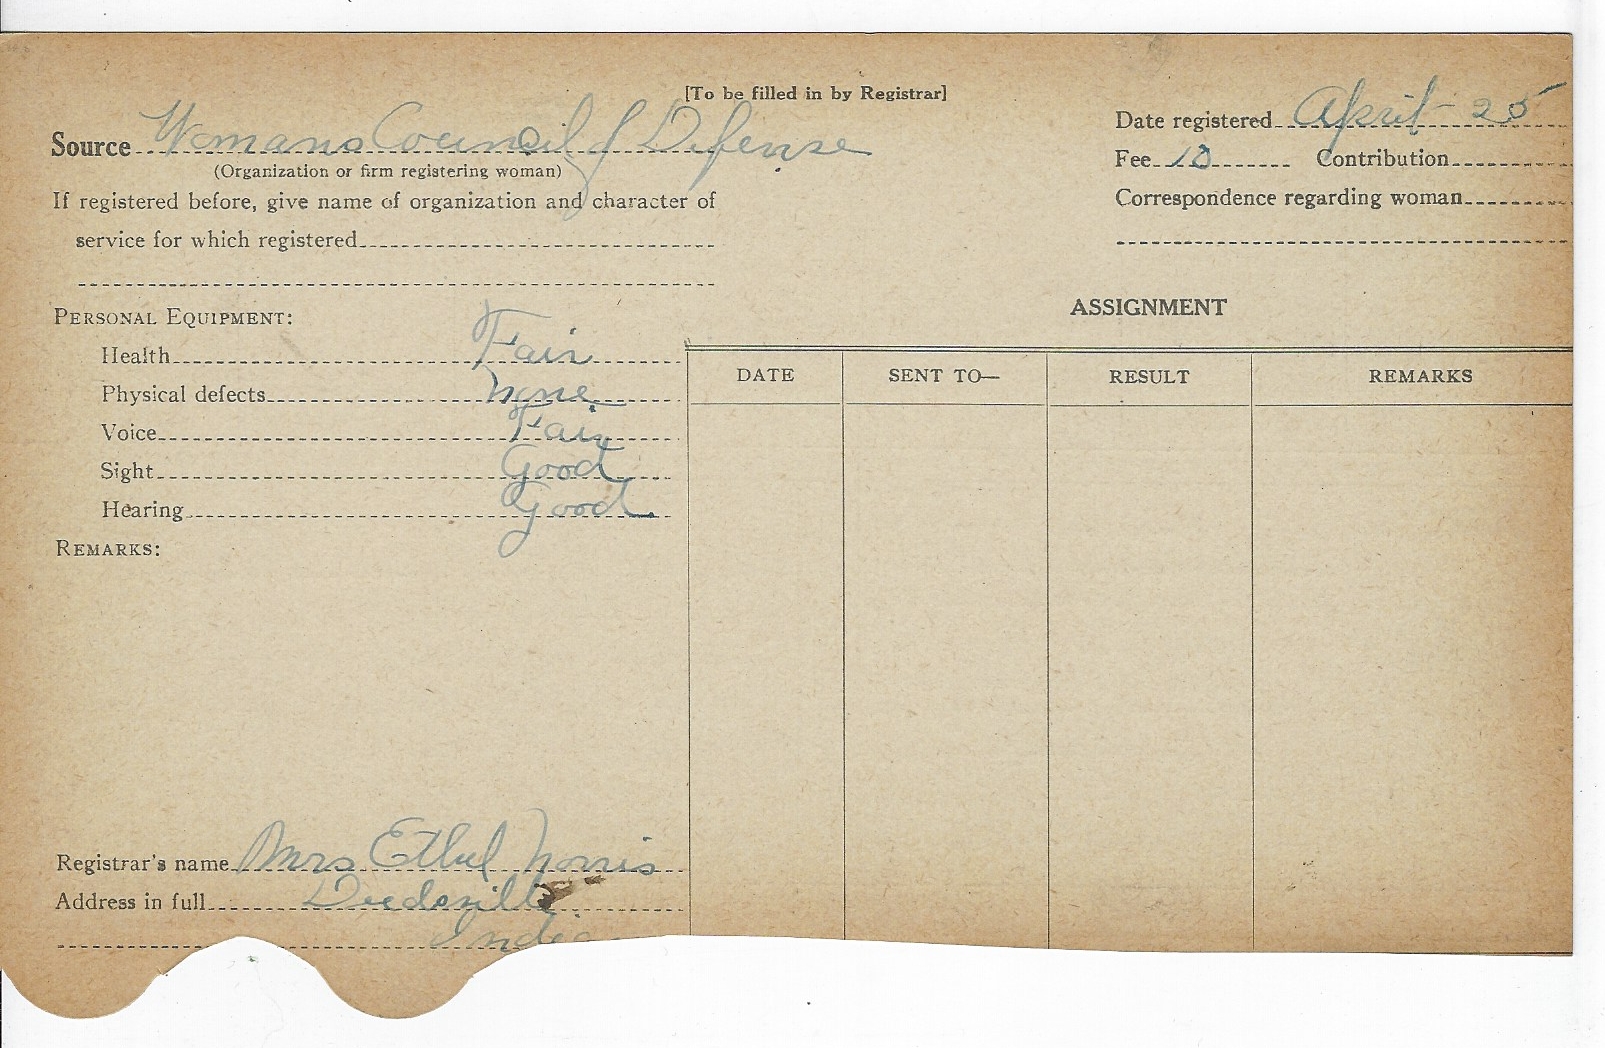 [To be filled in by Registrar]
Source Womans Council of Defense
(Organization or firm registering woman)
If registered before, give name of organization and character of
service for which registered
Date registered April - 25
Fee 10 Contribution
Correspondence regarding woman
PERSONAL EQUIPMENT:
Health Fair
Physical defects none
Voice Fair
Sight Good
Hearing Good
REMARKS:
ASSIGNMENT
DATE SENT TO— RESULT REMARKS
Registrar's name Mrs Ethel Norris
Address in full Deedsville
India